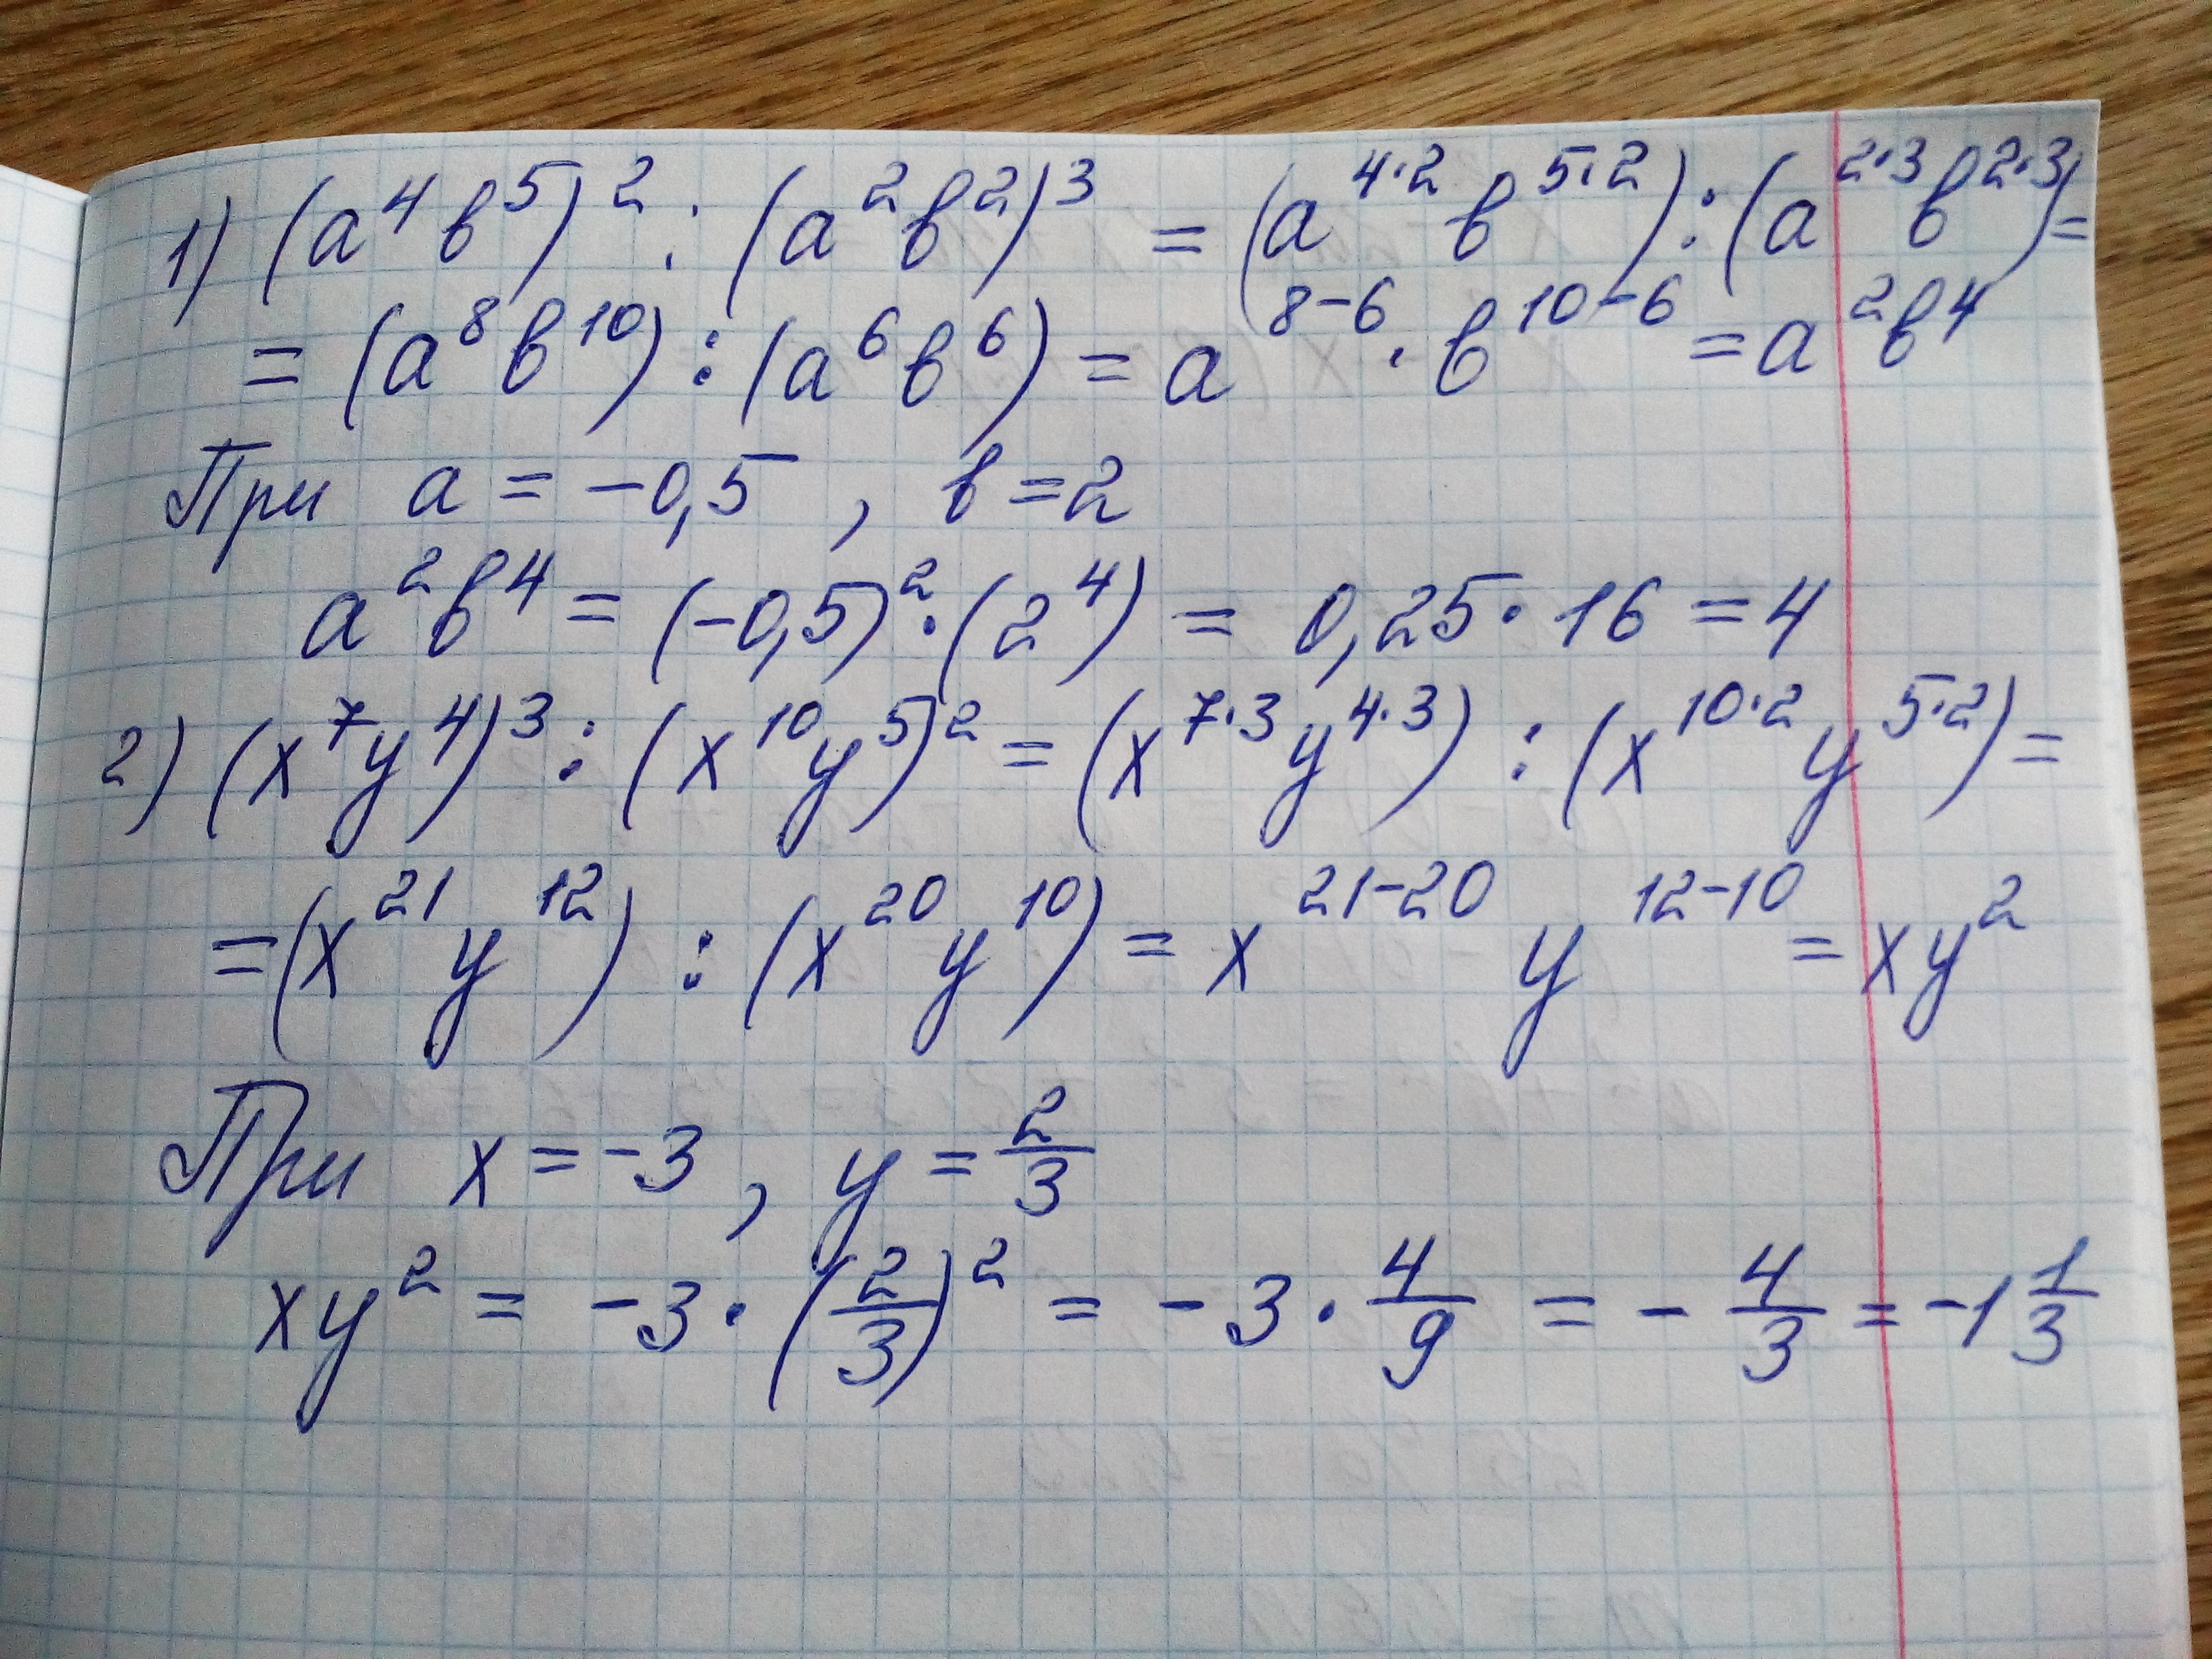 1) (a⁴b⁵)² : (a²b²)³ = (a⁴·²b⁵·²) : (a²·³b²·³) =
= (a⁸b¹⁰) : (a⁶b⁶) = a⁸⁻⁶ · b¹⁰⁻⁶ = a²b⁴
При a = -0,5, b = 2
a²b⁴ = (-0,5)² · (2⁴) = 0,25 · 16 = 4
2) (x⁷y⁴)³ : (x¹⁰y⁵)² = (x⁷·³y⁴·³) : (x¹⁰·²y⁵·²) =
= (x²¹y¹²) : (x²⁰y¹⁰) = x²¹⁻²⁰ y¹²⁻¹⁰ = xy²
При x = -3, y = 2/3
xy² = -3 · (2/3)² = -3 · 4/9 = - 4/3 = -1 1/3